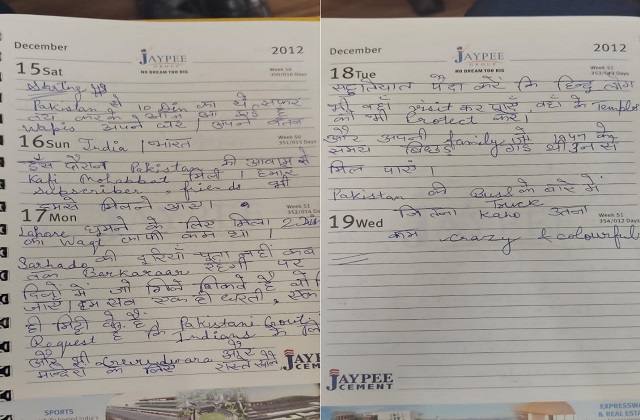 December
JAYPEE
GROUP
NO DREAM TOO BIG
2012
15 Sat
Week 50
350/016 Days
Pakistan से 10 Din का ये सफर
आज आ गई है
Wapis अपने घर, अपने वतन
16 Sun
India / भारत
Week 50
351/015 Days
इस दौरान Pakistan की आवाम से
Kafi Mohabbat मिली। हमारे
subscriber, friends भी
हमसे मिलने आए।
17 Mon
Week 51
352/014 Days
Lahore घूमने के लिए मिला 2 Din
का Waqt काफी कम था।
Sarhado की दूरियां पता नहीं कब
तक Barkaraar रहेगी पर
दिलों में जो मिले
जाएं। हम सब एक ही धरती, एक
ही मिट्टी के हैं।
Request है कि Pakistani Govt.
Indians के लिए
और भी Gurudwara और
मन्दिरों के लिए रास्ते खोले
JAYPEE
SPORTS
December
JAYPEE
GROUP
NO DREAM TOO BIG
2012
18 Tue
Week 51
353/013 Days
पैदा करें कि हिन्दू लोग
भी वहाँ visit कर पाएं, वहाँ के Temples
को भी Protect करें।
और अपनी family जो 1947 के
समय बिछड़ गई थी उन से
मिल पाएं।
Pakistan की Bus के बारे में
Truck
19 Wed
Week 51
354/012 Days
जितना Kaho उतना
कम crazy & colourful
JAYPEE
CEMENT
EXPRESSWA
& REAL ESTA